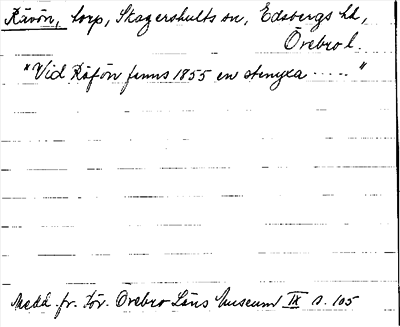 Rävön, torp, Skagershults sn, Edsbergs hd,
Örebro l.
"Vid Räfön finns 1855 en stenyxa ....."
Medd. fr. för. Örebro Läns Museum IX s. 105